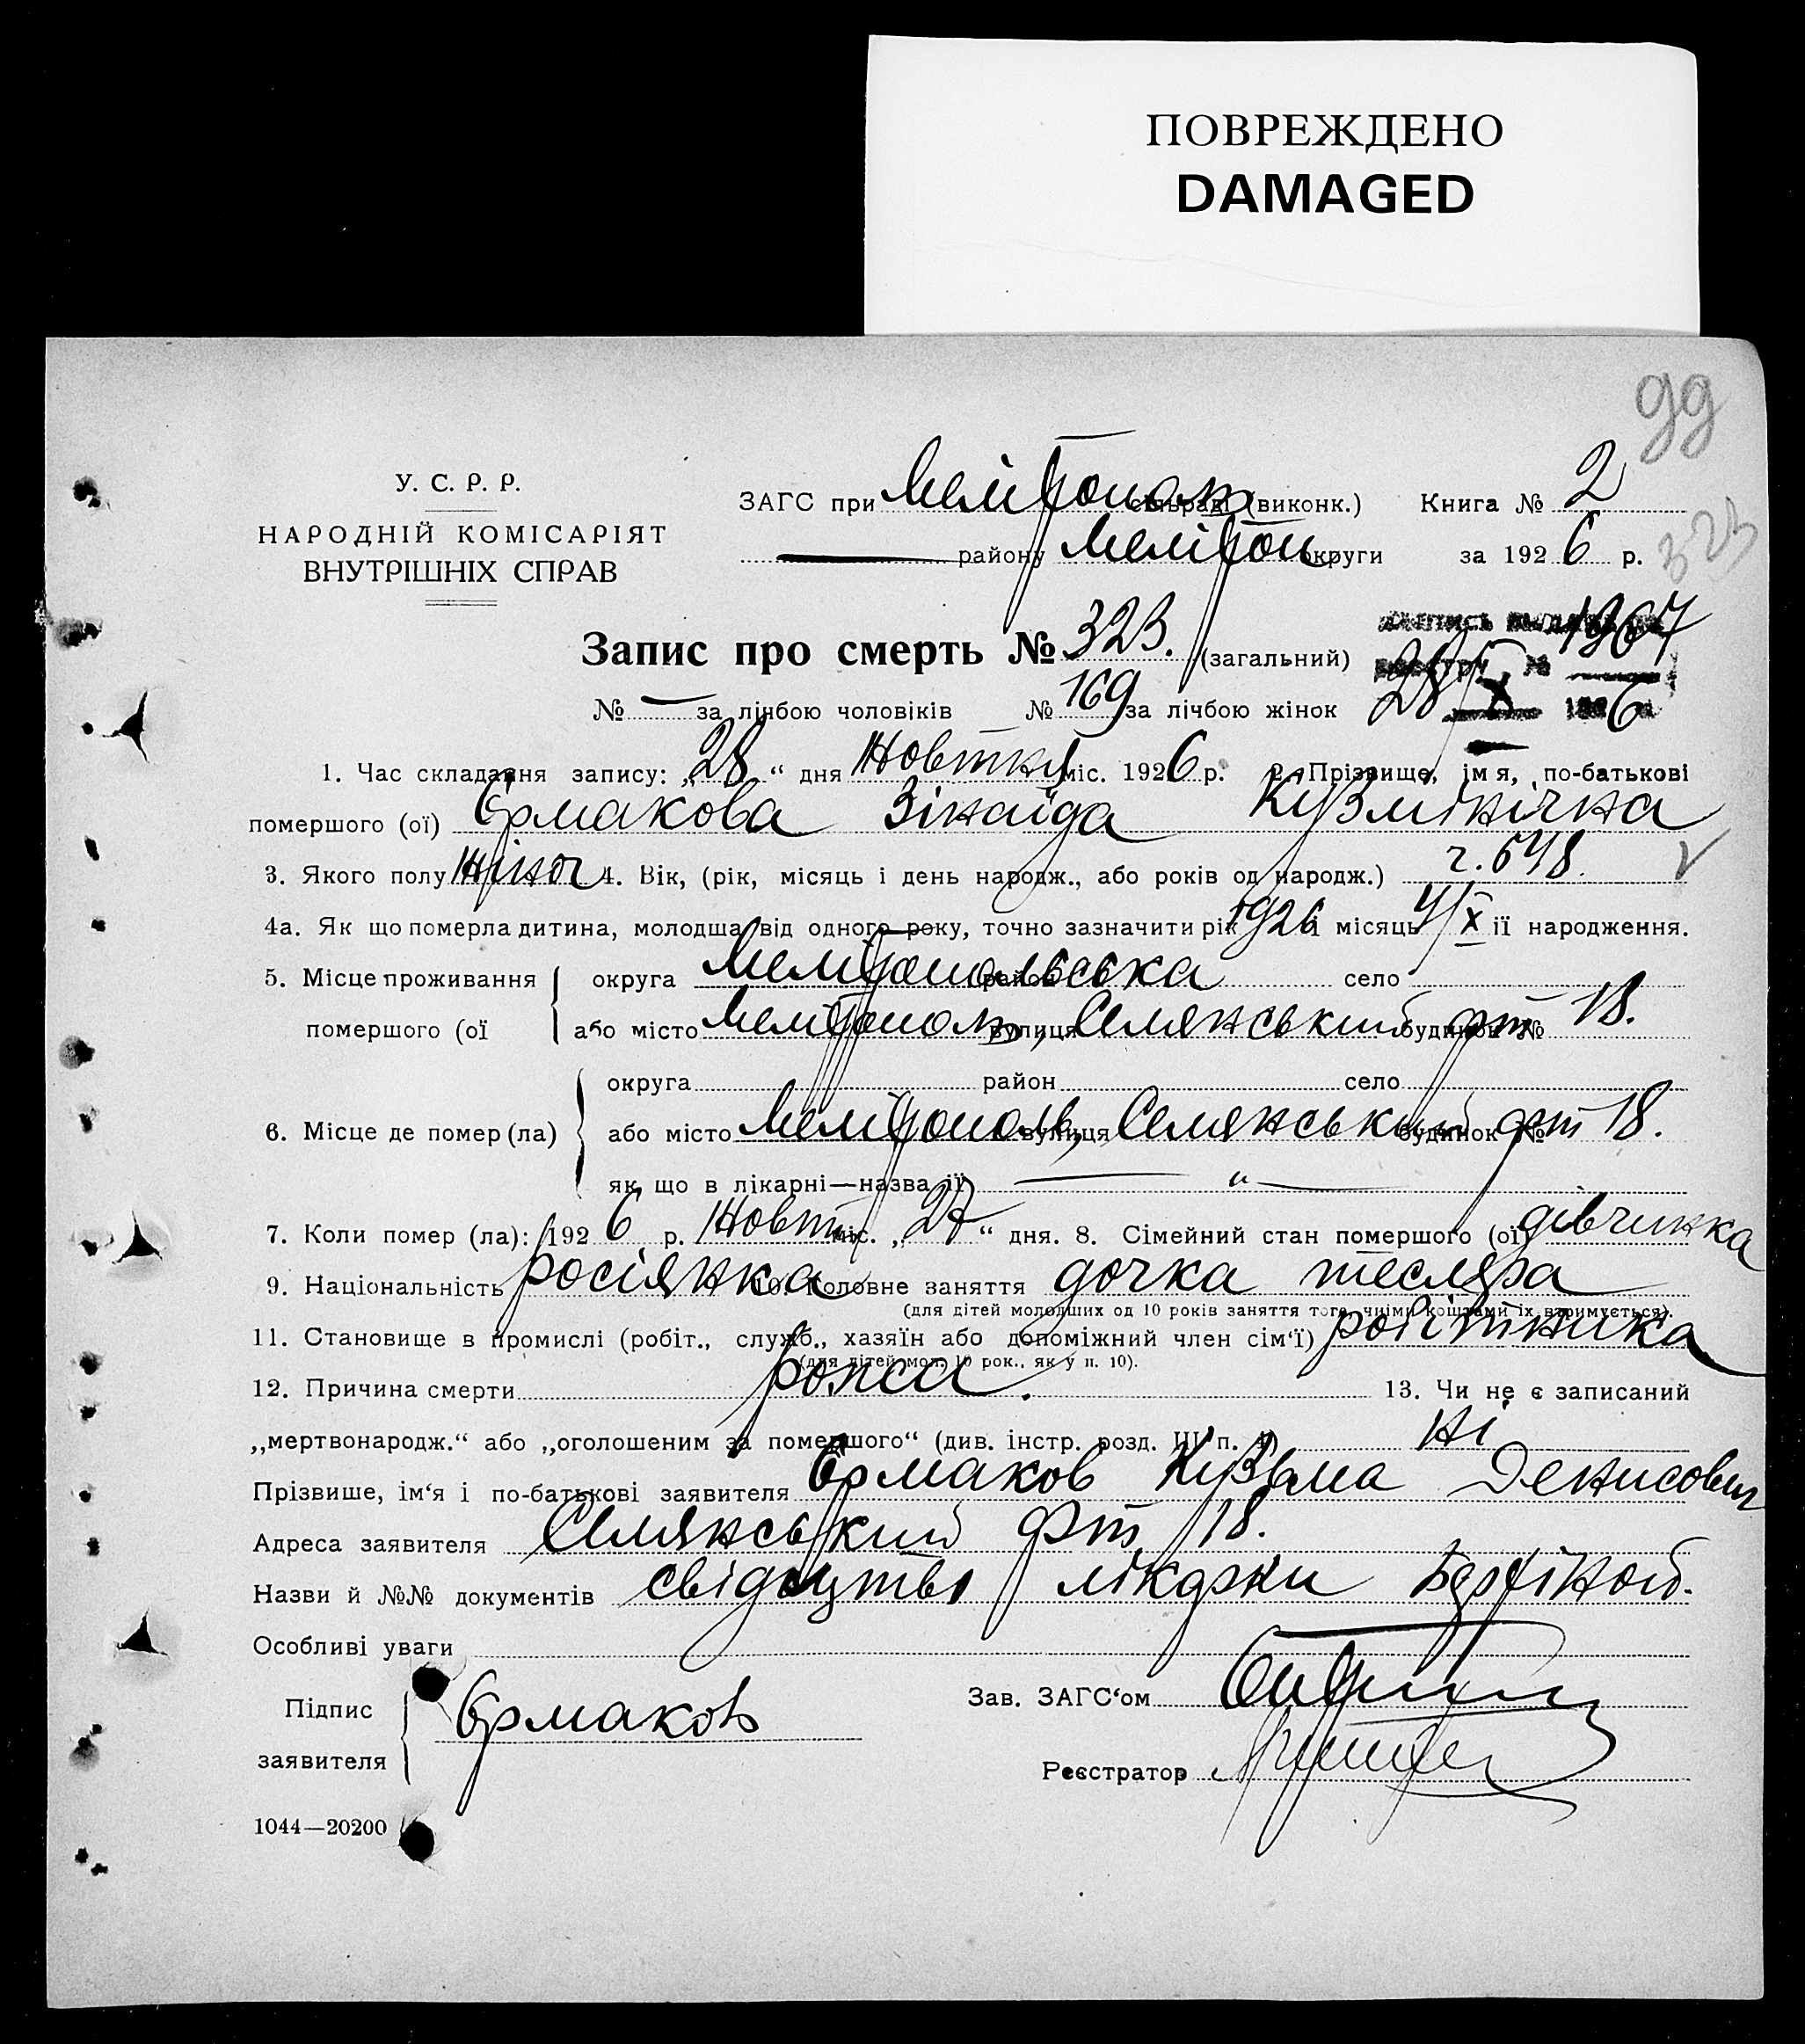 ПОВРЕЖДЕНО
DAMAGED
99
У. С. Р. Р.
НАРОДНІЙ КОМІСАРІЯТ
ВНУТРІШНІХ СПРАВ
ЗАГС при Мелітополь сільраді (виконк.) Книга № 2
району Мелітоп округи за 1926 р.
323
Запис про смерть № 323. (загальний)
1367
№ — за лічбою чоловіків № 169 за лічбою жінок
28/X 1926
1. Час складання запису: „28“ дня Жовтня міс. 1926 р. 2. Прізвище, імя, по-батькові
помершого (ої) Єрмакова Зінаїда Кузмінічна
3. Якого полу жіноч 4. Вік, (рік, місяць і день народж., або років од народж.) г. 648.
4а. Як що померла дитина, молодша від одного року, точно зазначити рік 1926 і місяць 4/X її народження.
5. Місце проживання округа Мелітопольська район село
помершого (ої або місто Мелітополь, вулиця Селянський будинок № 18.
округа район село
6. Місце де помер (ла) або місто Мелітополь, вулиця Селянський будинок № 18.
як що в лікарні—назва її — „ —
7. Коли помер (ла): 1926 р. Жовт міс. „27“ дня. 8. Сімейний стан помершого (ої) дівчинка
9. Національність росіянка 10. Головне заняття дочка тесляра
(для дітей молодших од 10 років заняття того, чиїми коштами їх втримується).
11. Становище в промислі (робіт., служб., хазяїн або допоміжний член сім‘ї) робітника
(для дітей мол. 10 рок., як у п. 10).
12. Причина смерти рожа. 13. Чи не є записаний
„мертвонародж.“ або „оголошеним за помершого“ (див. інстр. розд. III п. 4) ні
Прізвише, ім‘я і по-батькові заявителя Єрмаков Кузьма Денисович
Адреса заявителя Селянський 18.
Назви й №№ документів свідоцтво лікарки
Особливі уваги
Підпис Єрмаков Зав. ЗАГС‘ом
заявителя
Реєстратор
1044—20200